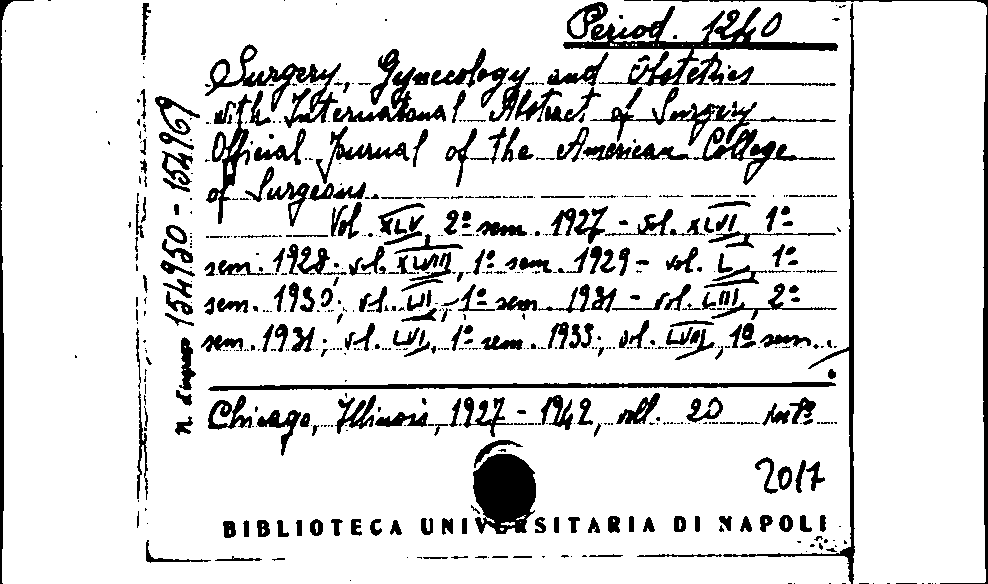 Period. 1240
Surgery, Gynecology and Obstetrics
with International Abstract of Surgery.
Official Journal of the American College
of Surgeons.
Vol. XLV, 2º sem. 1927 - vol. XLVI, 1º
sem. 1928; vol. XLVIII, 1º sem. 1929 - vol. L, 1º
sem. 1930; vol. LII, 1º sem. 1931 - vol. LIII, 2º
sem. 1931; vol. LVI, 1º sem. 1933; vol. LVIII, 1º sem..
Chicago, Illinois, 1927 - 1942, voll. 20
n. d'ingresso 154950 - 154969
2017
BIBLIOTECA UNIVERSITARIA DI NAPOLI